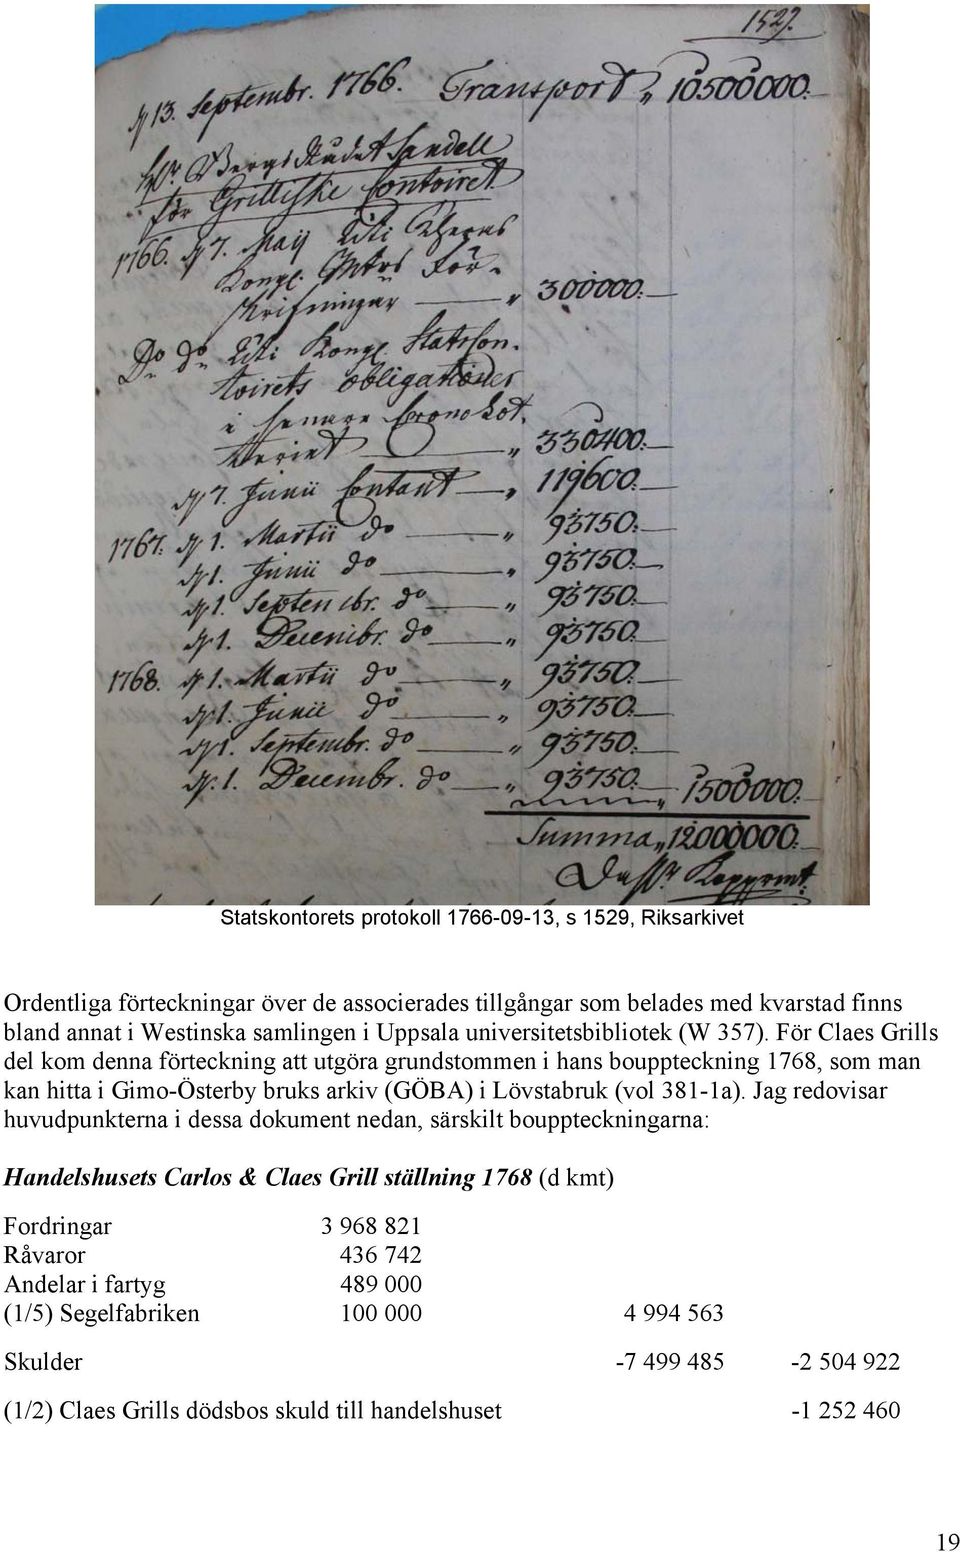 1529.
d 13. Septembr. 1766. Transport „ 10500000:
Hr. Bergs Rudet Sandell
för Grilliske Contoiret.
1766. d 7. Maij Uti
Kongl. För-
skrifningar — „ 300000:
Do do Uti Kongl. Statscon-
toirets obligationer
i senare Crono Lot-
teriet — „ 330400:
d 7. Junii Contant — „ 119600:
1767. d 1. Martii do — „ 93750:
d 1. Junii do — „ 93750:
d 1. Septembr. do — „ 93750:
d 1. Decembr. do — „ 93750:
1768. d 1. Martii do — „ 93750:
d 1. Junii do — „ 93750:
d 1. Septembr. do — „ 93750:
d. 1. Decembr. do — „ 93750: „ 1500000:
Summa „ 12000000:
Statskontorets protokoll 1766-09-13, s 1529, Riksarkivet
Ordentliga förteckningar över de associerades tillgångar som belades med kvarstad finns
bland annat i Westinska samlingen i Uppsala universitetsbibliotek (W 357). För Claes Grills
del kom denna förteckning att utgöra grundstommen i hans bouppteckning 1768, som man
kan hitta i Gimo-Österby bruks arkiv (GÖBA) i Lövstabruk (vol 381-1a). Jag redovisar
huvudpunkterna i dessa dokument nedan, särskilt bouppteckningarna:
Handelshusets Carlos & Claes Grill ställning 1768 (d kmt)
Fordringar 3 968 821
Råvaror 436 742
Andelar i fartyg 489 000
(1/5) Segelfabriken 100 000 4 994 563
Skulder -7 499 485 -2 504 922
(1/2) Claes Grills dödsbos skuld till handelshuset -1 252 460
19